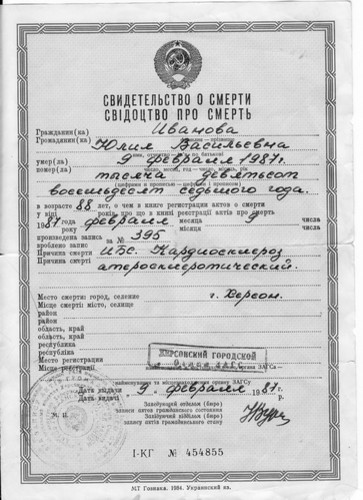 СВИДЕТЕЛЬСТВО О СМЕРТИ
СВІДОЦТВО ПРО СМЕРТЬ
Гражданин(ка) Иванова
Громадянин(ка)
Юлия Васильевна
умер(ла) 9 февраля 1987г.
помер(ла) число, місяць, рік
тысяча девятьсот
(цифрами и прописью — цифрами і прописом)
восемьдесят седьмого года.
в возрасте 88 лет, о чем в книге регистрации актов о смерти
у віці років, про що в книзі реєстрації актів про смерть
1987 года февраля месяца 9 числа
місяця числа
произведена запись за № 395
зроблено запис
Причина смерти ИБС. Кардиосклероз
Причина смерті атеросклеротический.
Место смерти: город, селение г. Херсон.
Місце смерті: місто, селище
район
район
область, край
область, край
республика
республіка
Место регистрации ХЕРСОНСКИЙ ГОРОДСКОЙ
Місце реєстрації Отдел ЗАГСа
Дата выдачи 9. февраля 1987г.
Дата видачі р.
Заведующий отделом (бюро)
записи актов гражданского состояния
Завідуючий відділом (бюро)
запису актів громадянського стану
М. П.
I-КГ № 454855
МТ Гознака. 1984. Украинский яз.